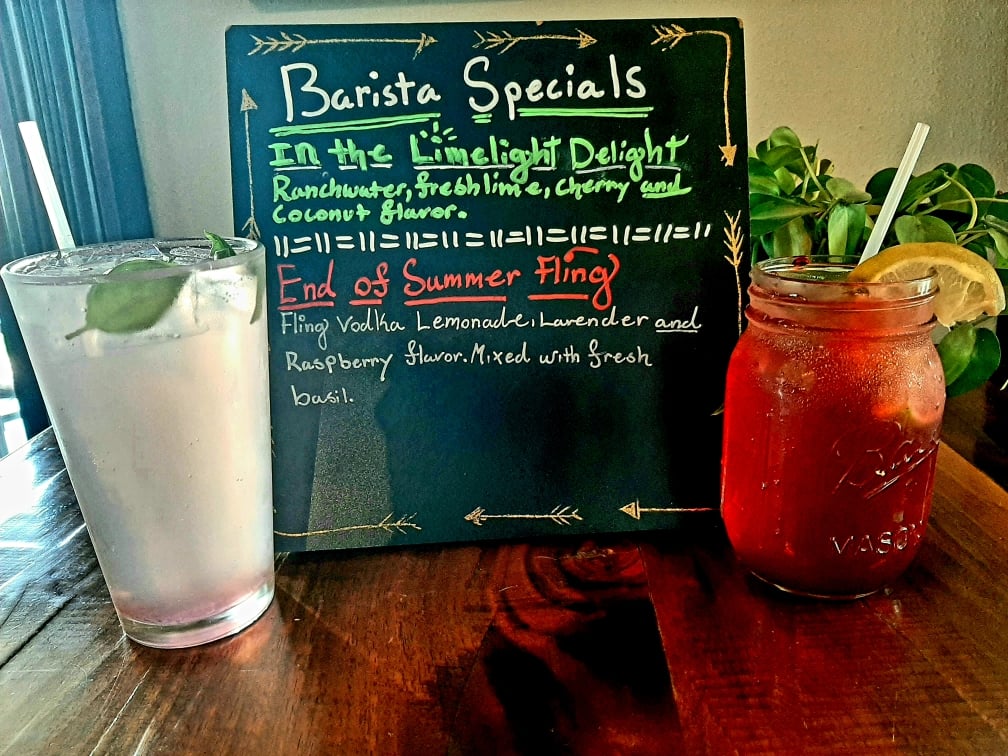 Barista Specials
In the Limelight Delight
Ranchwater, fresh lime, cherry and
Coconut flavor.
End of Summer Fling
Fling Vodka Lemonade, Lavender and
Raspberry flavor. Mixed with fresh
basil.
Ball
MASON